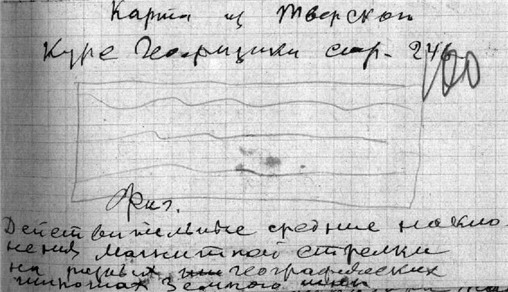 Карта из Тверской
Курс Геофизики стр. 24
100
Фиг.
Действительные средние накло-
нения магнитной стрелки
на разных географических
широтах Земного